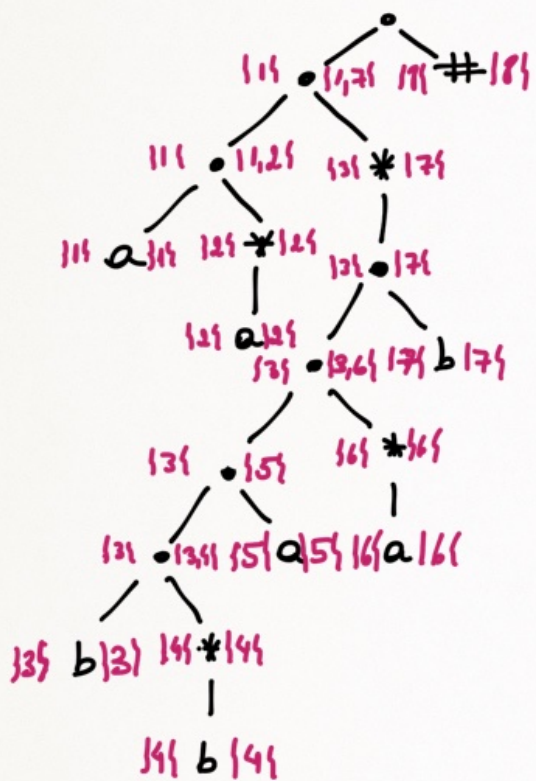 •
{1} • {1,7} {8} # {8}
{1} • {1,2} {3} * {7}
{1} a {1} {2} * {2} {3} • {7}
{2} a {2}
{3} • {3,6} {7} b {7}
{3} • {5} {6} * {6}
{3} • {3,4} {5} a {5} {6} a {6}
{3} b {3} {4} * {4}
{4} b {4}